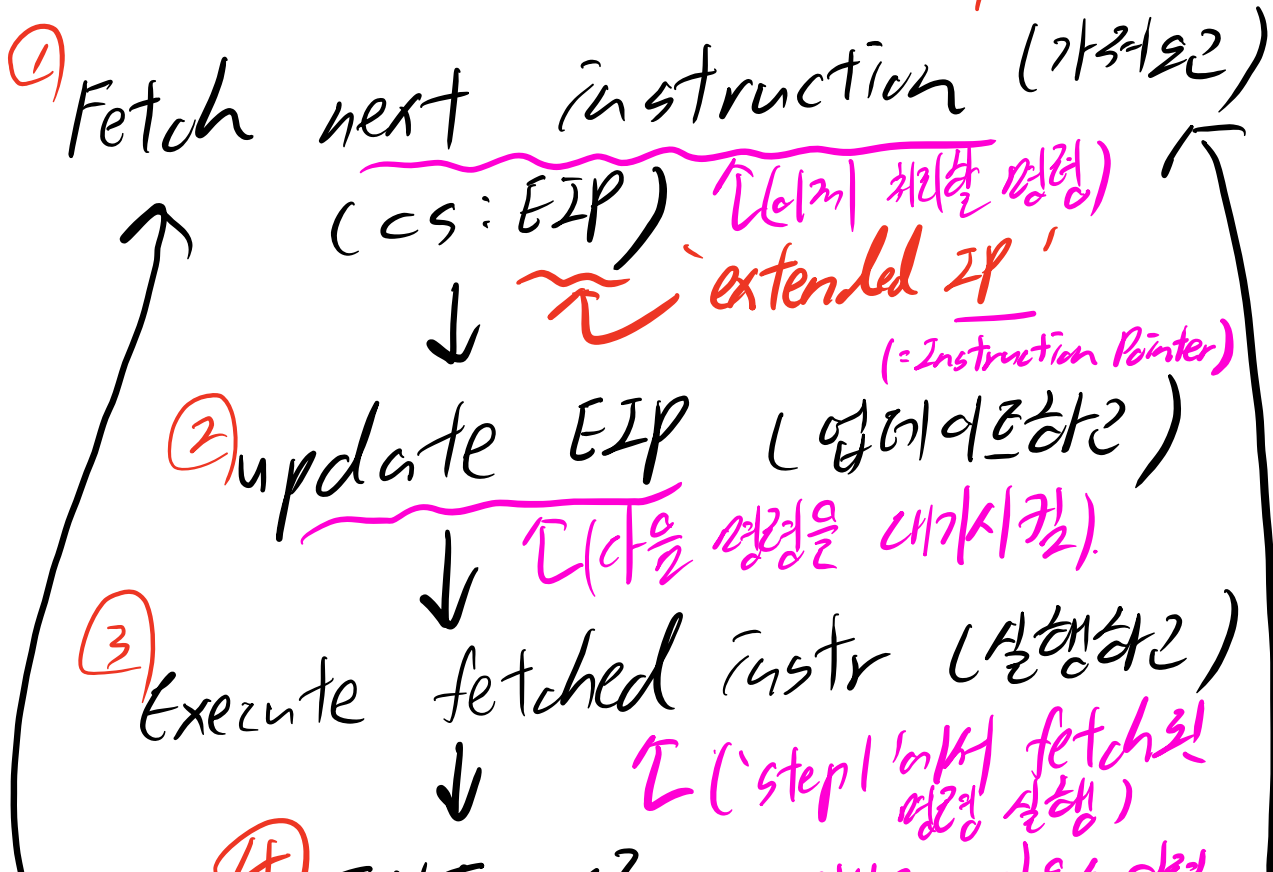 ① Fetch next instruction (가져오고)
(cs:EIP) (이제 처리할 명령)
'extended IP'
(=Instruction Pointer)
② update EIP (업데이트하고)
(다음 명령을 대기시킴).
③ Execute fetched instr (실행하고)
('step1'에서 fetch된
명령 실행)
④